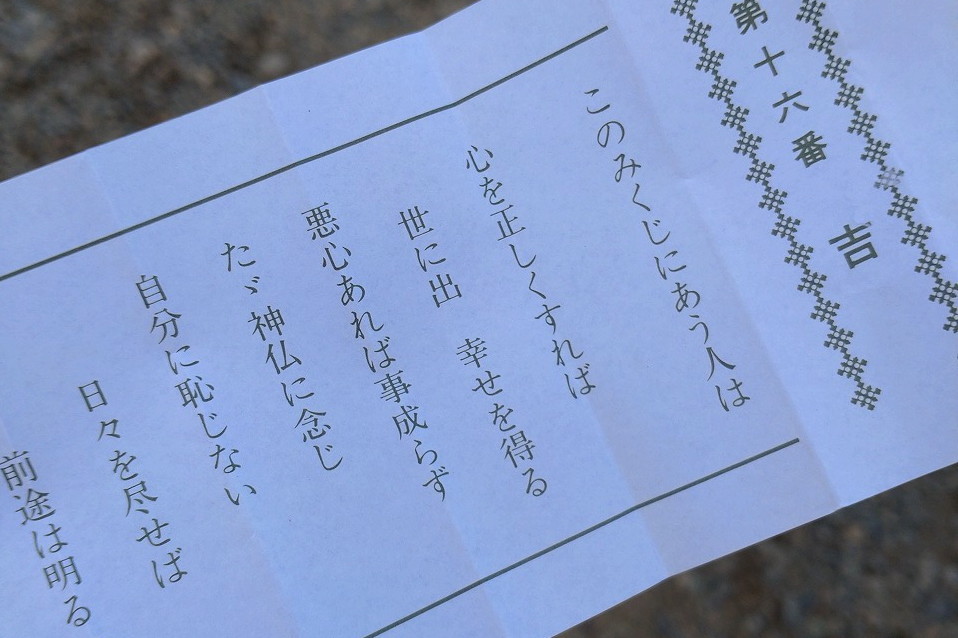 第十六番 吉
このみくじにあう人は
心を正しくすれば
世に出 幸せを得る
悪心あれば事成らず
たゞ神仏に念じ
自分に恥じない
日々を尽せば
前途は明る